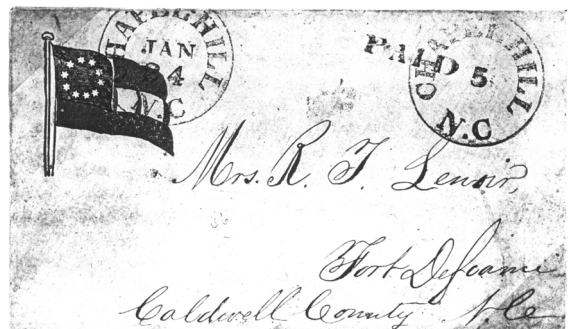 CHAPEL HILL
JAN
24
N.C
PAID 5
CHAPEL HILL
N.C
Mrs. R. T. Lenoir,
Fort Defiance
Caldwell County N. Ca